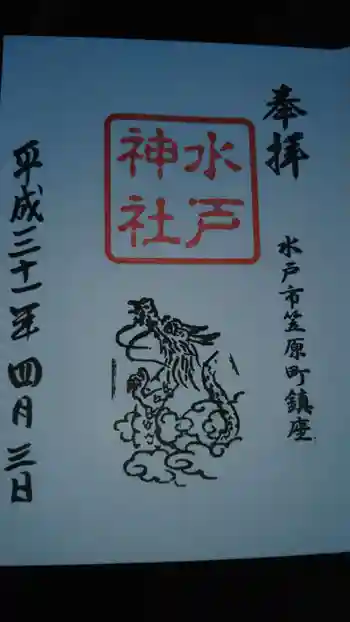 奉拝
水戸市笠原町鎮座
水戸
神社
平成三十一年四月三日